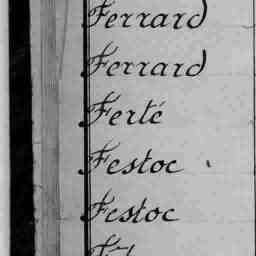 Ferrard
Ferrard
Ferté
Festoc
Festoc